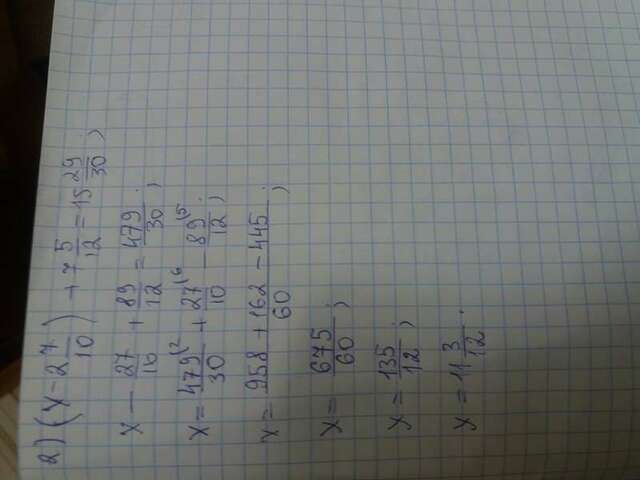 2) (x - 2 7/10) + 7 5/12 = 15 29/30;
x - 27/10 + 89/12 = 479/30;
x = 479(2/30 + 27(6/10 - 89(5/12;
x = 958 + 162 - 445/60;
x = 675/60;
x = 135/12;
x = 11 3/12.